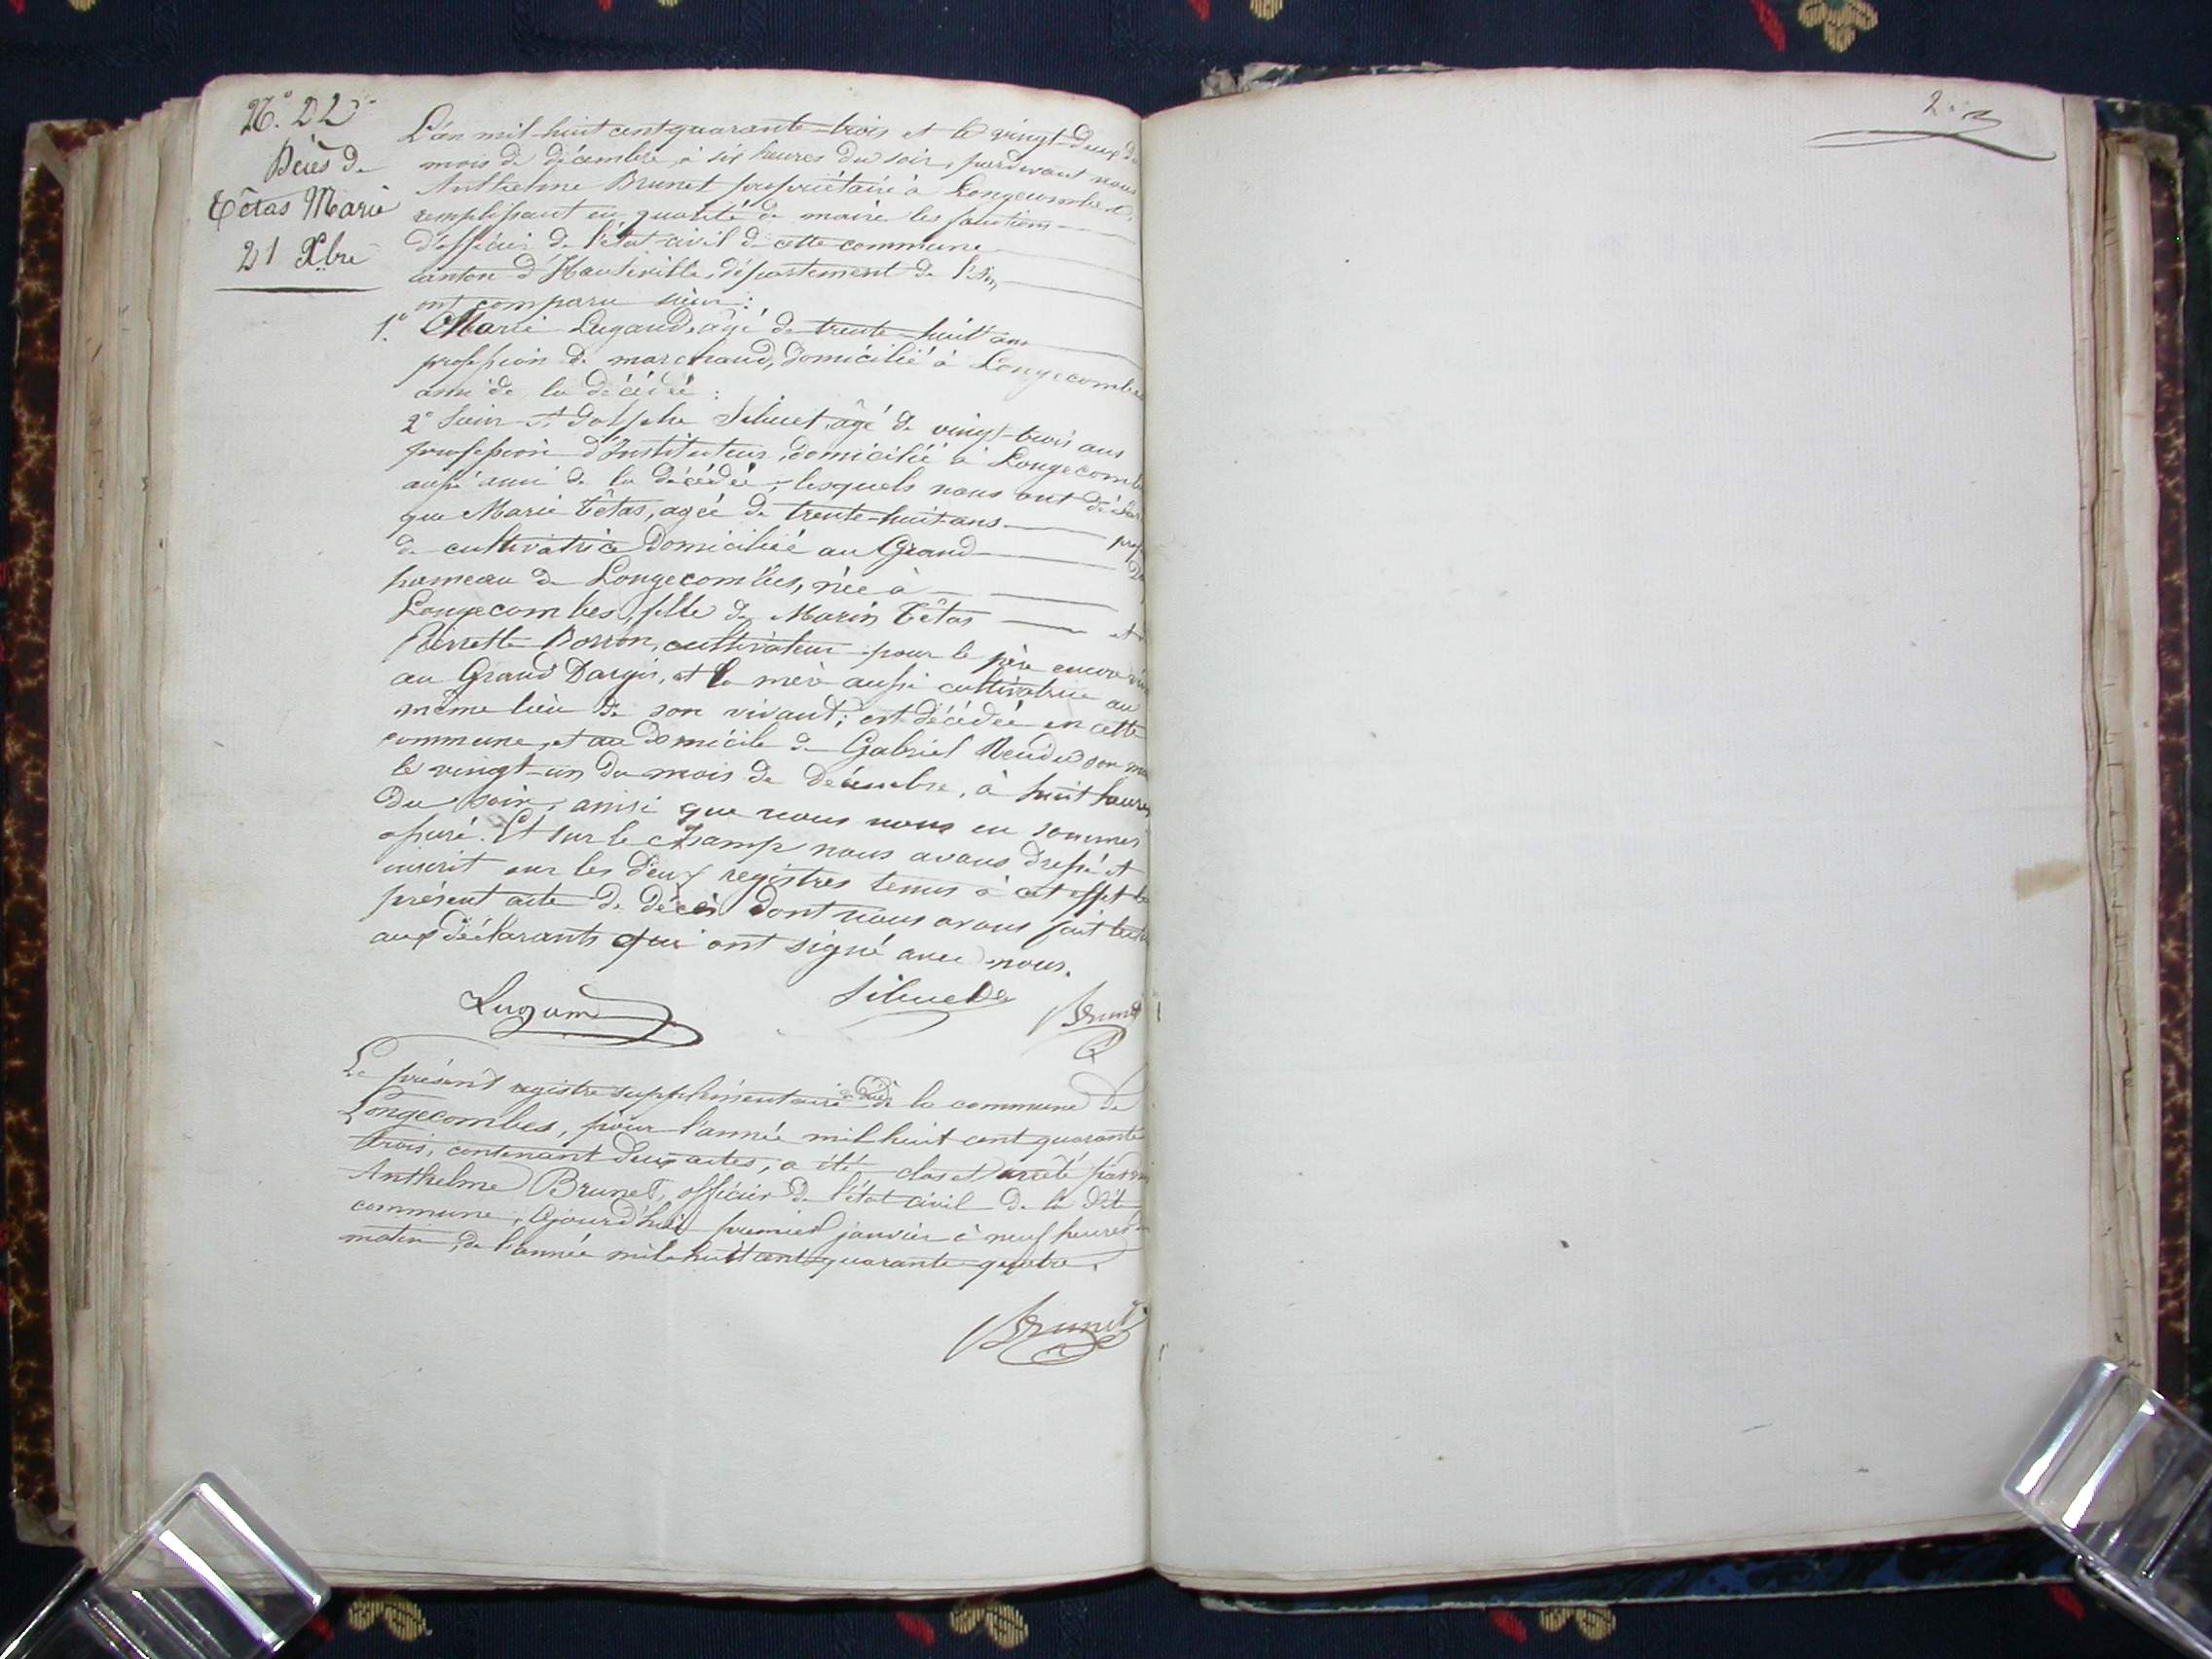 N.° 22
Décès de
Têtas Marie
21 Xbre
L'an mil huit cent quarante-trois et le vingt-deux du
mois de décembre, à six heures du soir, pardevant nous
Anthelme Brunet propriétaire à Longecombes
remplissant en qualité de maire les fonctions
d'officier de l'état civil de cette commune
canton d'Hauteville, département de l'Ain,
ont comparu sieur :
1.° Marie Lugand, âgé de trente-huit ans
profession de marchand, domicilié à Longecombes
ami de la décédée :
2° Sieur Adolphe Silvuet, âgé de vingt-trois ans
profession d'Instituteur, domicilié à Longecombes
aussi ami de la décédée; lesquels nous ont déclar
que Marie Têtas, agée de trente-huit ans prof
de cultivatrice domiciliée au Grand D
hameau de Longecombes, née à
Longecombes, fille de Marin Têtas et
Pierrette Borron, cultivateur pour le père encore
au Grand Dargis, et la mère aussi cultivatrice au
même lieu de son vivant; est décédée en cette
commune, et au domicile de Gabriel Rendu son ma
le vingt-un du mois de décembre, à huit heures
du soir, ainsi que nous nous en sommes
assuré. Et sur le champ nous avons dressé et
inscrit sur les deux registres tenus à cet effet le
présent acte de décès dont nous avons fait lectu
aux déclarants qui ont signé avec nous.
Lugand Brunet
Le présent registre supplémentaire de décès de la commune de
Longecombes, pour l'année mil huit cent quarante
trois, contenant deux actes, a été clos et arrêté par
Anthelme Brunet, officier de l'état civil de la dite
commune, Ajourd'hui premier janvier à neuf heures
matin, de l'année mil huit cent quarante quatre.
Brunet